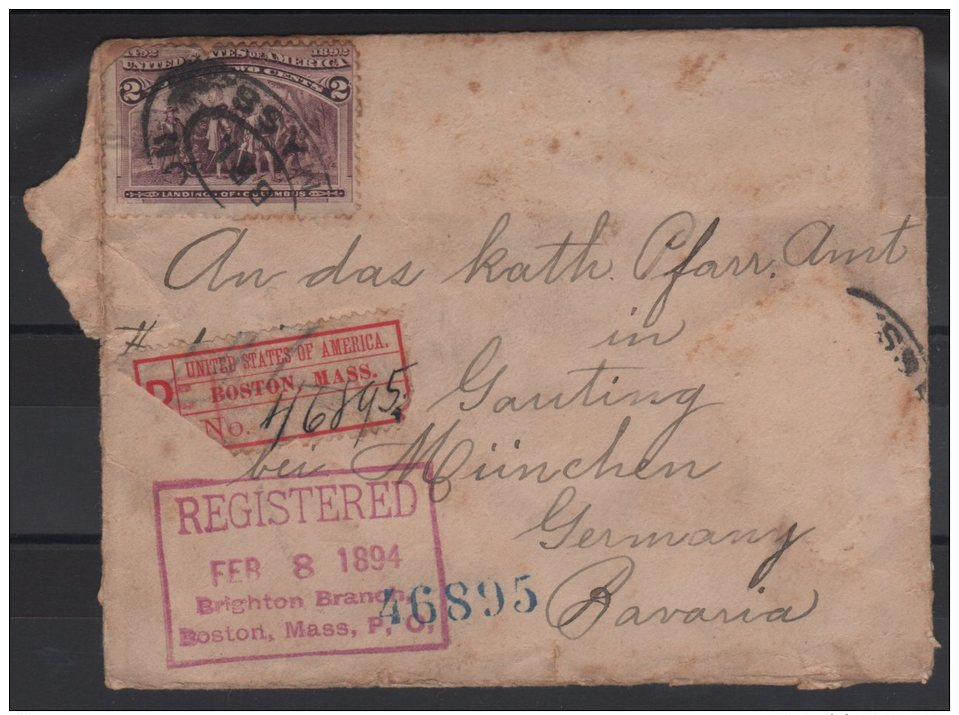 1492 1892
UNITED STATES OF AMERICA
2 TWO CENTS 2
LANDING OF COLUMBUS
MASS
An das kath. Pfarr. Amt
in
Gauting
bei München
Germany
Bavaria
UNITED STATES OF AMERICA.
R BOSTON MASS.
No. 46895
REGISTERED
FEB 8 1894
Brighton Branch,
Boston, Mass, P, O,
46895